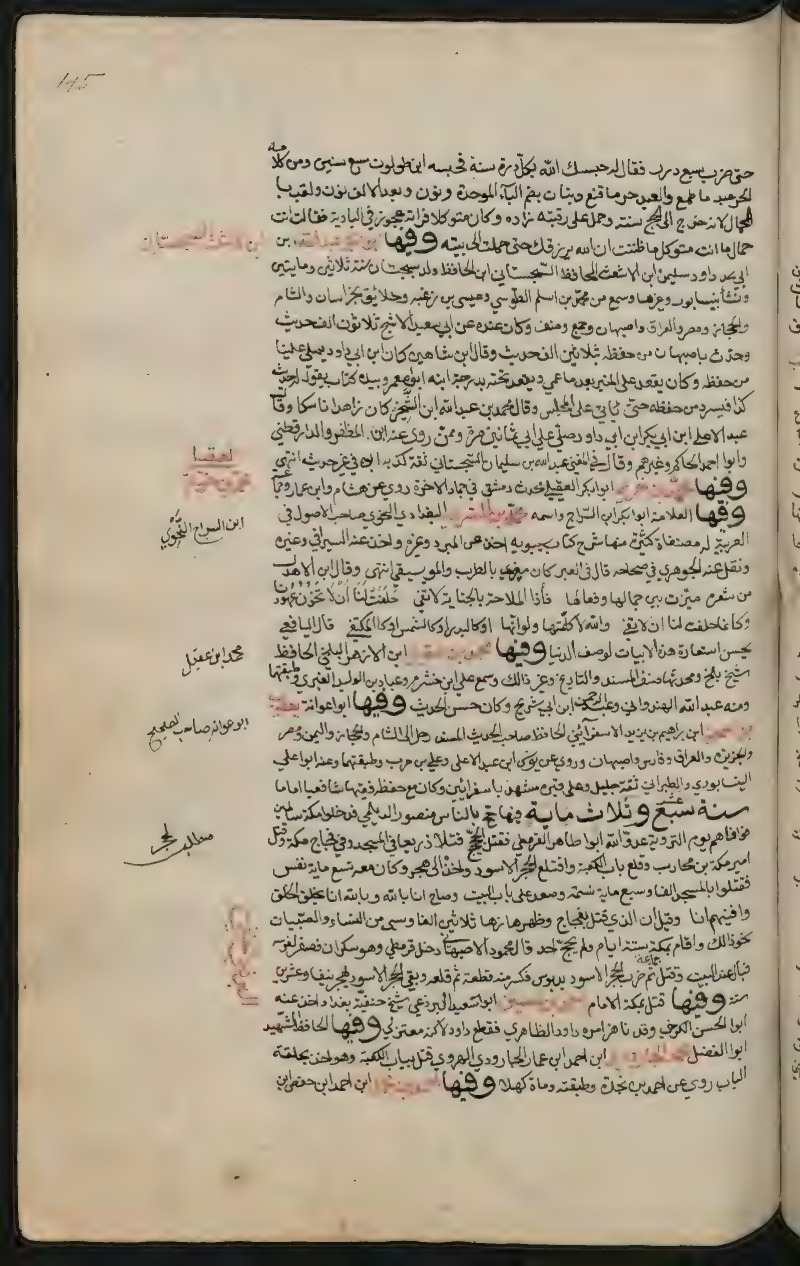 ١٤٥
حتى ضرب سبع درر فقال له حبسك الله بكل درة سنة فحبسه ابن طولون سبع سنين ومن كلامه
الحر عبد ما طمع والعبد حر ما قنع وبنان بضم الباء الموحدة ونون وبعد الالف نون ولقب با
لحمال لانه خرج الى الحج سنة وحمل على رقبته زاده وكان متوكلا فراته عجوز في البادية فقالت انت
حمال ما انت متوكل ما ظننت ان الله يرزقك حتى حملت الى بيته وفيها ابو بكر عبدالله بن
ابي بكر داود سليمن ابن الاشعث الحافظ السجستاني ابن الحافظ ولد بسجستان سنة ثلاثين ومايتين
ونشأ بنيسابور وغيرها وسمع من محمد بن اسلم الطوسي وعيسى بن زغبه وخلايق بخراسان والشام
والحجاز ومصر والعراق واصبهان وجمع وصنف وكان عنده عن ابي سعيد الاشج ثلاثون الف حديث
وحدث باصبهان من حفظه بثلاثين الف حديث وقال ابن شاهين كان ابن ابي داود يملي علينا
من حفظه وكان يقعد على المنبر بعد ما عمي ويقعد تحته بدرجة ابنه ابو معمر وبيده كتاب يقول له حديث
كذا فيسرد من حفظه حتى ياتي على المجلس وقال محمد بن عبدالله ابن الشخير كان زاهدا ناسكا وقال
عبد الاعلى ابن ابي بكر ابن ابي داود صلي على ابي ثمانين مرة وممن روى عنه ابن المظفر والدارقطني
وابوا احمد الحاكم وغيرهم وقال في المغني عبد الله بن سليمان السجستاني ثقة كذبه ابوه في غير حديث انتهى
وفيها محمد بن خريم ابوا بكر العقيلي محدث دمشق في جماد الاخرة روى عن هشام وابن عمار
وفيها العلامة ابوا بكر ابن السراج واسمه محمد بن السري البغدادي النحوي صاحب الاصول في
العربية له مصنفاة كثيرة منها شرح كتاب سيبويه اخذ عن المبرد وغيره واخذ عنه السيرافي وغيره
ونقل عنه الجوهري في صحاحه قال في العبر كان مغرى بالطرب والموسيقى انتهى وقال ابن الاهدل
من شعره ميزت بين جمالها وفعالها فأذا الملاحة بالجناية لا تفي حَلَفَتْ لَنَا أَنْ لَا تَخُونَ عُهُودَنَا
وكانما حلفت لنا ان لا تفي والله لا كلمتها ولو انها اوكالبدر او كالشمس او كالمكتفي قال اليافعي
يحسن استعارة هذه الابيات لوصف الدنيا وفيها محمد بن عقيل ابن الازهر البلخي الحافظ
شيخ بلخ ومحدثها صنف المسند والتاريخ وغير ذالك وسمع علي ابن خشرم وعباد بن الوليد الغبري وطبقتهما
ومنه عبد الله الهندواني وعبد الرحمن ابن ابي شريح وكان حسن الحديث وفيها ابو اعوانة يعقوب
بن اسحق ابن ابراهيم بن يزيد الاسفرائيني الحافظ صاحب الصحيح المسند رحل الى الشام والحجاز واليمن ومصر
والجزيرة والعراق وفارس واصبهان وروى عن يونس ابن عبد الاعلى وعلي بن حرب وطبقتهما وعنه ابوا علي
النيسابوري والطبراني ثقة جليل وعلى قبره مشهد باسفراين وكان مع حفظه فقيها شافعيا اماما
سنة سبع عشر وثلاث ماية فيها حج بالناس منصور الديلمي فدخلوا مكة سالمين
فوافاهم يوم التروية عدو الله ابوا طاهر القرمطي فقتل الحجيج قتلا ذريعا في المسجد وفي فجاج مكة وقتل
امير مكة بن محارب وقلع باب الكعبة واقتلع الحجر الاسود واخذه الى هجر وكان معه تسع ماية نفس
فقتلوا بالمسجد الفا وسبع ماية نسمة وصعد على باب البيت وصاح انا بالله وبالله انا يخلق الخلق
وافنيهم انا وقيل ان الذي قتل بفجاج وظهرها زها ثلاثين الفا وسبى من النساء والصبيان
نحو ذالك واقام بمكة ستة ايام ولم يحج احد قال محمود الاصبهاني دخل قرمطي وهو سكران فصفر لفرسه
فبال عند البيت وقتل جماعة ثم ضرب الحجر الاسود بدبوس فكسر منه قطعة ثم قلعه وبقي الحجر الاسود بهجر نيف وعشرين
سنة وفيها قتل بمكة الامام احمد بن حسين ابوا سعيد البردعي شيخ حنفية بغداد اخذ عنه
ابوا الحسن الكرخي وقد ناظر مره داود الظاهري فقطع داود لاكنه معتزلي وفيها الحافظ الشهيد
ابوا الفضل محمد الجارودي ابن احمد ابن عمار الجارودي الهروي قتل بباب الكعبة وهو اخذ بحلقة
الباب روى عن احمد بن نجدة وطبقته وماة كهلا وفيها ابن احمد ابن حفص ابن
العقيلي
محمد بن خريم
ابن السراج النَّحْوي
محمد ابن عقيل
ابو عوانه صاحب الصحيح
مطلب الحجر